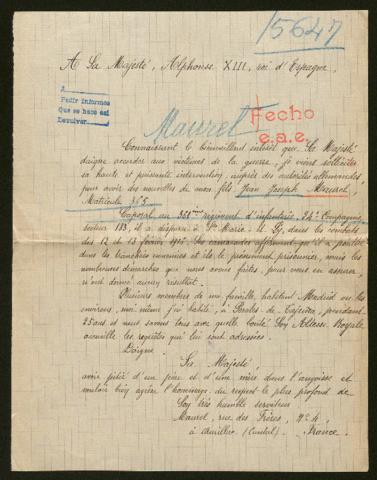 15647
A Sa Majesté, Alphonse XIII, roi d'Espagne,
A
Pedir informes
Que se hace así
Devolver
Maurel
Fecho
e.a.e.
Connaissant le bienveillant intérêt que Sa Majesté
daigne accorder aux victimes de la guerre, je viens solliciter
sa haute et puissante intervention, auprès des autorités allemandes,
pour avoir des nouvelles de mon fils Jean Joseph Maurel,
Matricule 365.
Caporal au 361me régiment d'infanterie, 24e Compagnie,
secteur 133, il a disparu à Ste Marie à Py, dans les combats
des 12 et 13 février 1916. Ses camarades affirment qu'il a pénétré
dans les tranchées ennemies et ils le présument prisonnier, mais les
nombreuses démarches que nous avons faites, pour nous en assurer,
n'ont donné aucun résultat.
Plusieurs membres de ma famille, habitent Madrid ou les
environs, moi-même j'ai habité, à Perales de Tajuña, pendant
25 ans et nous savons tous avec quelle bonté Son Altesse Royale
accueille les requêtes qui lui sont adressées.
Daigne
Sa Majesté
avoir pitié d'un père et d'une mère dans l'angoisse et
vouloir bien agréer l'hommage du respect le plus profond de
Son très humble serviteur
Maurel, rue des Frères, Nº 4,
à Aurillac (Cantal). France.